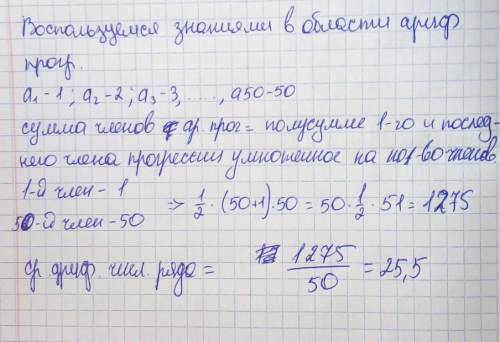 Воспользуемся знаниями в области ариф
прог.
a1-1; a2-2; a3-3, ....., a50-50
сумма членов ар. прог = полусумме 1-го и послед-
него члена прогрессии умноженное на кол-во членов.
1-й член - 1
50-й член - 50
⇒ 1/2 · (50+1) · 50 = 50 · 1/2 · 51 = 1275
ср. ариф. числ. ряда = 1275/50 = 25,5